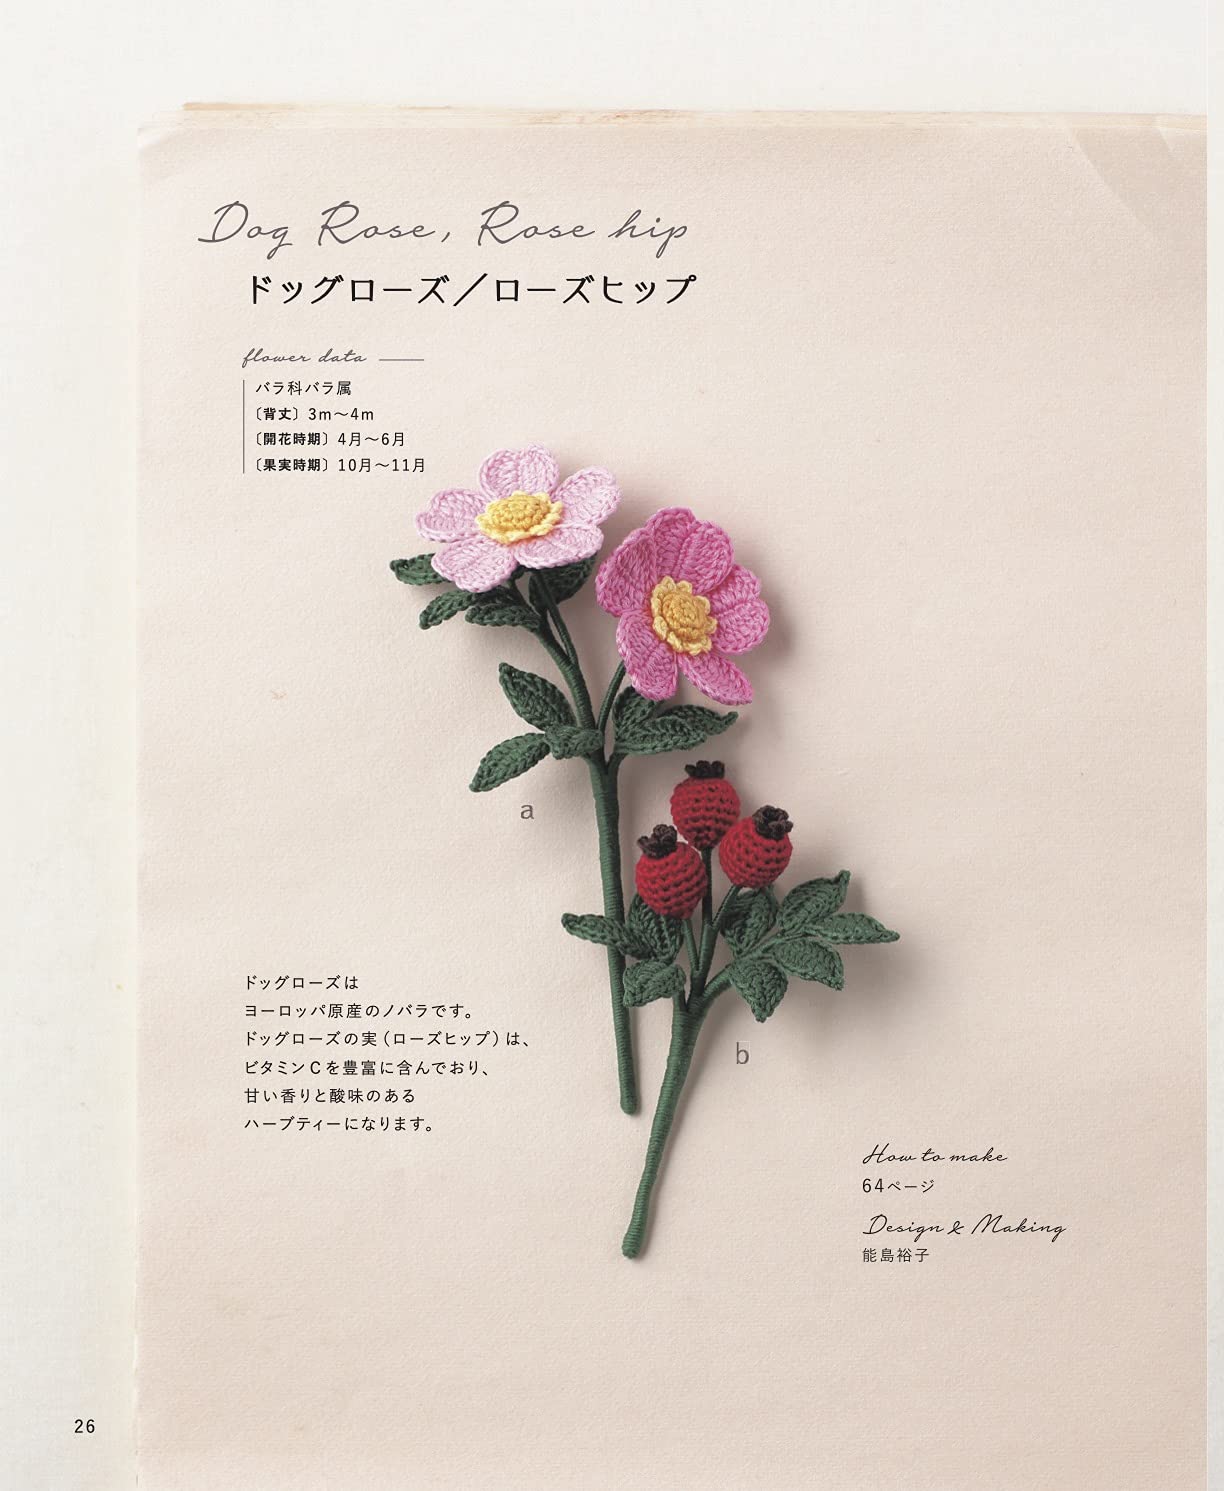 Dog Rose, Rose hip
ドッグローズ／ローズヒップ
flower data
バラ科バラ属
〔背丈〕3m〜4m
〔開花時期〕4月〜6月
〔果実時期〕10月〜11月
a
b
ドッグローズは
ヨーロッパ原産のノバラです。
ドッグローズの実（ローズヒップ）は、
ビタミンCを豊富に含んでおり、
甘い香りと酸味のある
ハーブティーになります。
How to make
64ページ
Design & Making
能島裕子
26